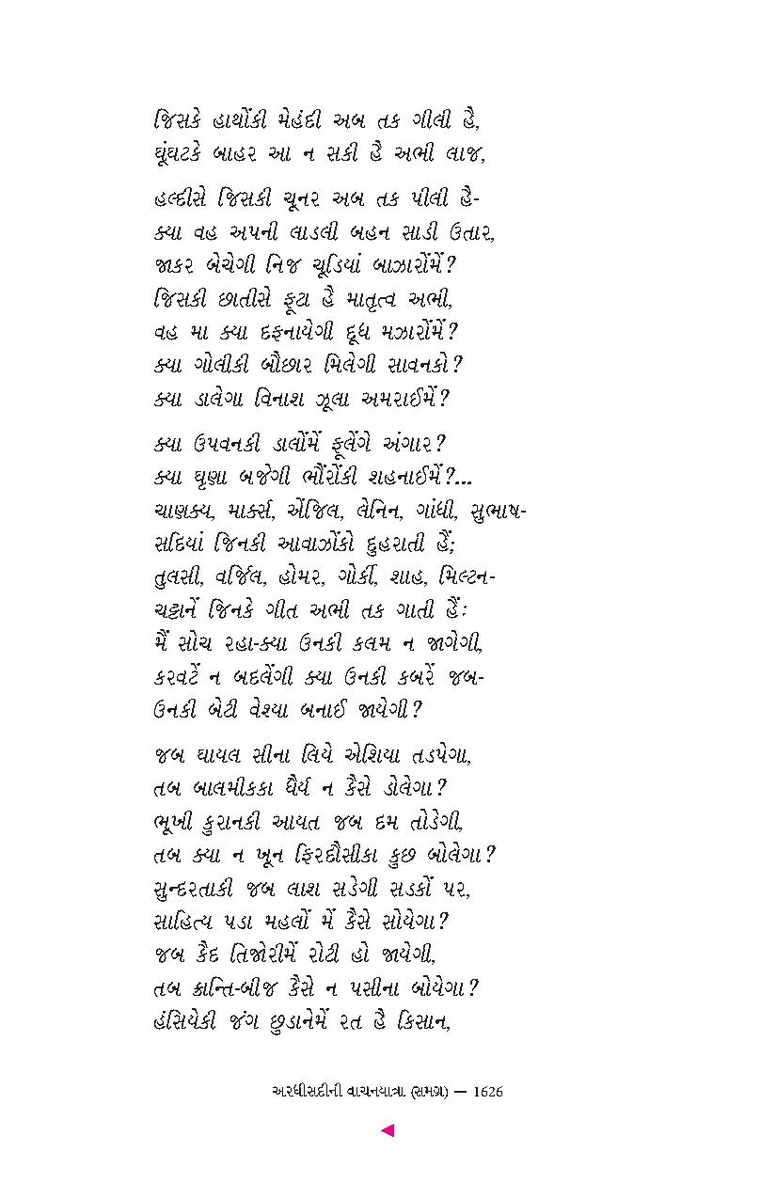 જિસકે હાથોંકી મેહંદી અબ તક ગીલી હૈ,
ઘૂંઘટકે બાહર આ ન સકી હૈ અભી લાજ,
હલ્દીસે જિસકી ચૂનર અબ તક પીલી હૈ-
ક્યા વહ અપની લાડલી બહન સાડી ઉતાર,
જાકર બેચેગી નિજ ચૂડિયાં બાઝારોંમેં?
જિસકી છાતીસે ફૂટા હૈ માતૃત્વ અભી,
વહ મા ક્યા દફનાયેગી દૂધ મઝારોંમેં?
ક્યા ગોલીકી બૌછાર મિલેગી સાવનકો?
ક્યા ડાલેગા વિનાશ ઝૂલા અમરાઈમેં?
ક્યા ઉપવનકી ડાલોંમેં ફૂલેંગે અંગાર?
ક્યા ઘૃણા બજેગી ભૌંરોંકી શહનાઈમેં?...
ચાણક્ય, માર્ક્સ, ઍંજિલ, લેનિન, ગાંધી, સુભાષ-
સદિયાં જિનકી આવાઝોંકો દુહરાતી હૈં;
તુલસી, વર્જિલ, હોમર, ગોર્કી, શાહ, મિલ્ટન-
ચટ્ટાનેં જિનકે ગીત અભી તક ગાતી હૈં:
મૈં સોચ રહા-ક્યા ઉનકી કલમ ન જાગેગી,
કરવટેં ન બદલેંગી ક્યા ઉનકી કબરેં જબ-
ઉનકી બેટી વેશ્યા બનાઈ જાયેગી?
જબ ઘાયલ સીના લિયે એશિયા તડપેગા,
તબ બાલમીકકા ધૈર્ય ન કૈસે ડોલેગા?
ભૂખી કુરાનકી આયત જબ દમ તોડેગી,
તબ ક્યા ન ખૂન ફિરદૌસીકા કુછ બોલેગા?
સુન્દરતાકી જબ લાશ સડેગી સડકોં પર,
સાહિત્ય પડા મહલોં મેં કૈસે સોયેગા?
જબ કૈદ તિજોરીમેં રોટી હો જાયેગી,
તબ ક્રાન્તિ-બીજ કૈસે ન પસીના બોયેગા?
હંસિયેકી જંગ છુડાનેમેં રત હૈ કિસાન,
અરધીસદીની વાચનયાત્રા (સમગ્ર) — 1626